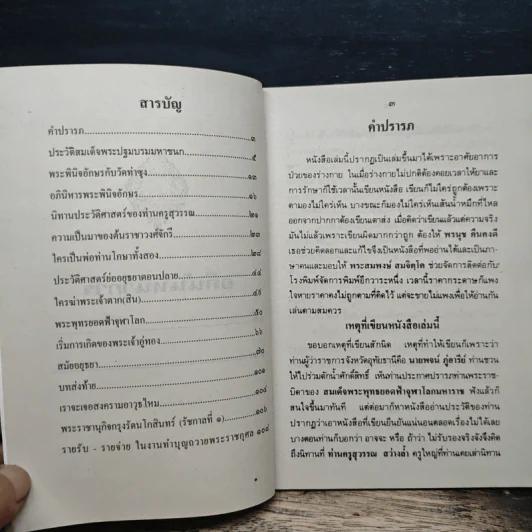 สารบัญ
คำปรารภ..........................................๓
ประวัติสมเด็จพระปฐมบรมมหาชนก..............๕
พระพินิจอักษรกับวัดท่าซุง.......................๑๓
อภินิหารพระพินิจอักษร...........................๑๖
นิทานประวัติศาสตร์ของท่านครูสุวรรณ...........๒๑
ความเป็นมาของต้นราชวงศ์จักรี..................๒๓
ใครเป็นพ่อท่านโกษาทั้งสอง......................๒๔
ประวัติศาสตร์ย่ออยุธยาตอนปลาย................๔๔
ใครฆ่าพระเจ้าตาก(สิน)...........................๕๐
พระพุทธยอดฟ้าจุฬาโลก..........................๕๖
เริ่มการเกิดของพระเจ้าอู่ทอง.....................๖๖
สมัยอยุธยา........................................๗๐
บทส่งท้าย..........................................๑๐๔
เราจะเจอสงครามอาวุธไหม.......................๑๐๔
พระราชานุกิจกรุงรัตนโกสินทร์ (รัชกาลที่ ๑)......๑๐๖
รายรับ - รายจ่าย ในงานทำบุญถวายพระราชกุศล ๑๐๘
๓
คำปรารภ
หนังสือเล่มนี้ปรากฏเป็นเล่มขึ้นมาได้เพราะอาศัยอาการ
ป่วยของร่างกาย ในเมื่อร่างกายไม่ปกติต้องคอยเวลาให้ยาและ
การรักษาก็ใช้เวลานั้นเขียนหนังสือ เขียนก็ไม่ใคร่ถูกต้องเพราะ
ตามองไม่ใคร่เห็น บางขณะก็มองไม่ใคร่เห็นเส้นน้ำหมึกที่ไหล
ออกจากปากกาต้องเขียนเดาส่ง เมื่อคิดว่าเขียนแล้วแต่ความจริง
มันไม่แล้วเพราะเขียนผิดมากกว่าถูก ต้องให้ พรนุช คืนคงดี
เธอช่วยคิดลอกและแก้ไขจึงเป็นหนังสือที่พออ่านได้และเป็นภาษา
คนและมอบให้ พระสมพงษ์ สมจิตโต ช่วยจัดการติดต่อกับ
โรงพิมพ์จัดการพิมพ์อีกวาระหนึ่ง เวลานี้ราคากระดาษก็แพง
ใจหายราคาคงไม่ถูกตามที่คิดไว้ แต่จะขายไม่แพงเพื่อให้อ่านกัน
เล่นตามสมควร
เหตุที่เขียนหนังสือเล่มนี้
ขอบอกเหตุที่เขียนสักนิด เหตุที่ทำให้เขียนก็เพราะว่า
ท่านผู้ว่าราชการจังหวัดอุทัยธานีคือ นายพจน์ ภู่อารีย์ ท่านชวน
ให้ไปร่วมตักน้ำศักดิ์สิทธิ์ เห็นท่านประกาศปรารภท่านพระราช-
บิดาของ สมเด็จพระพุทธยอดฟ้าจุฬาโลกมหาราช ฟังแล้วก็
สนใจขึ้นมาทันที แต่ต่อมาก็หาหนังสืออ่านประวัติของท่าน
ปรากฏว่าเอาหนังสือที่เขียนยืนยันแน่นอนตลอดเรื่องไม่ได้เลย
บางตอนท่านก็บอกว่า อาจจะ หรือ ถ้าว่า ไม่รับรองจริงจังจึงคิด
ถึงนิทานที่ ท่านครูสุวรรณ สว่างล้ำ ครูใหญ่ที่ท่านเคยเล่านิทาน